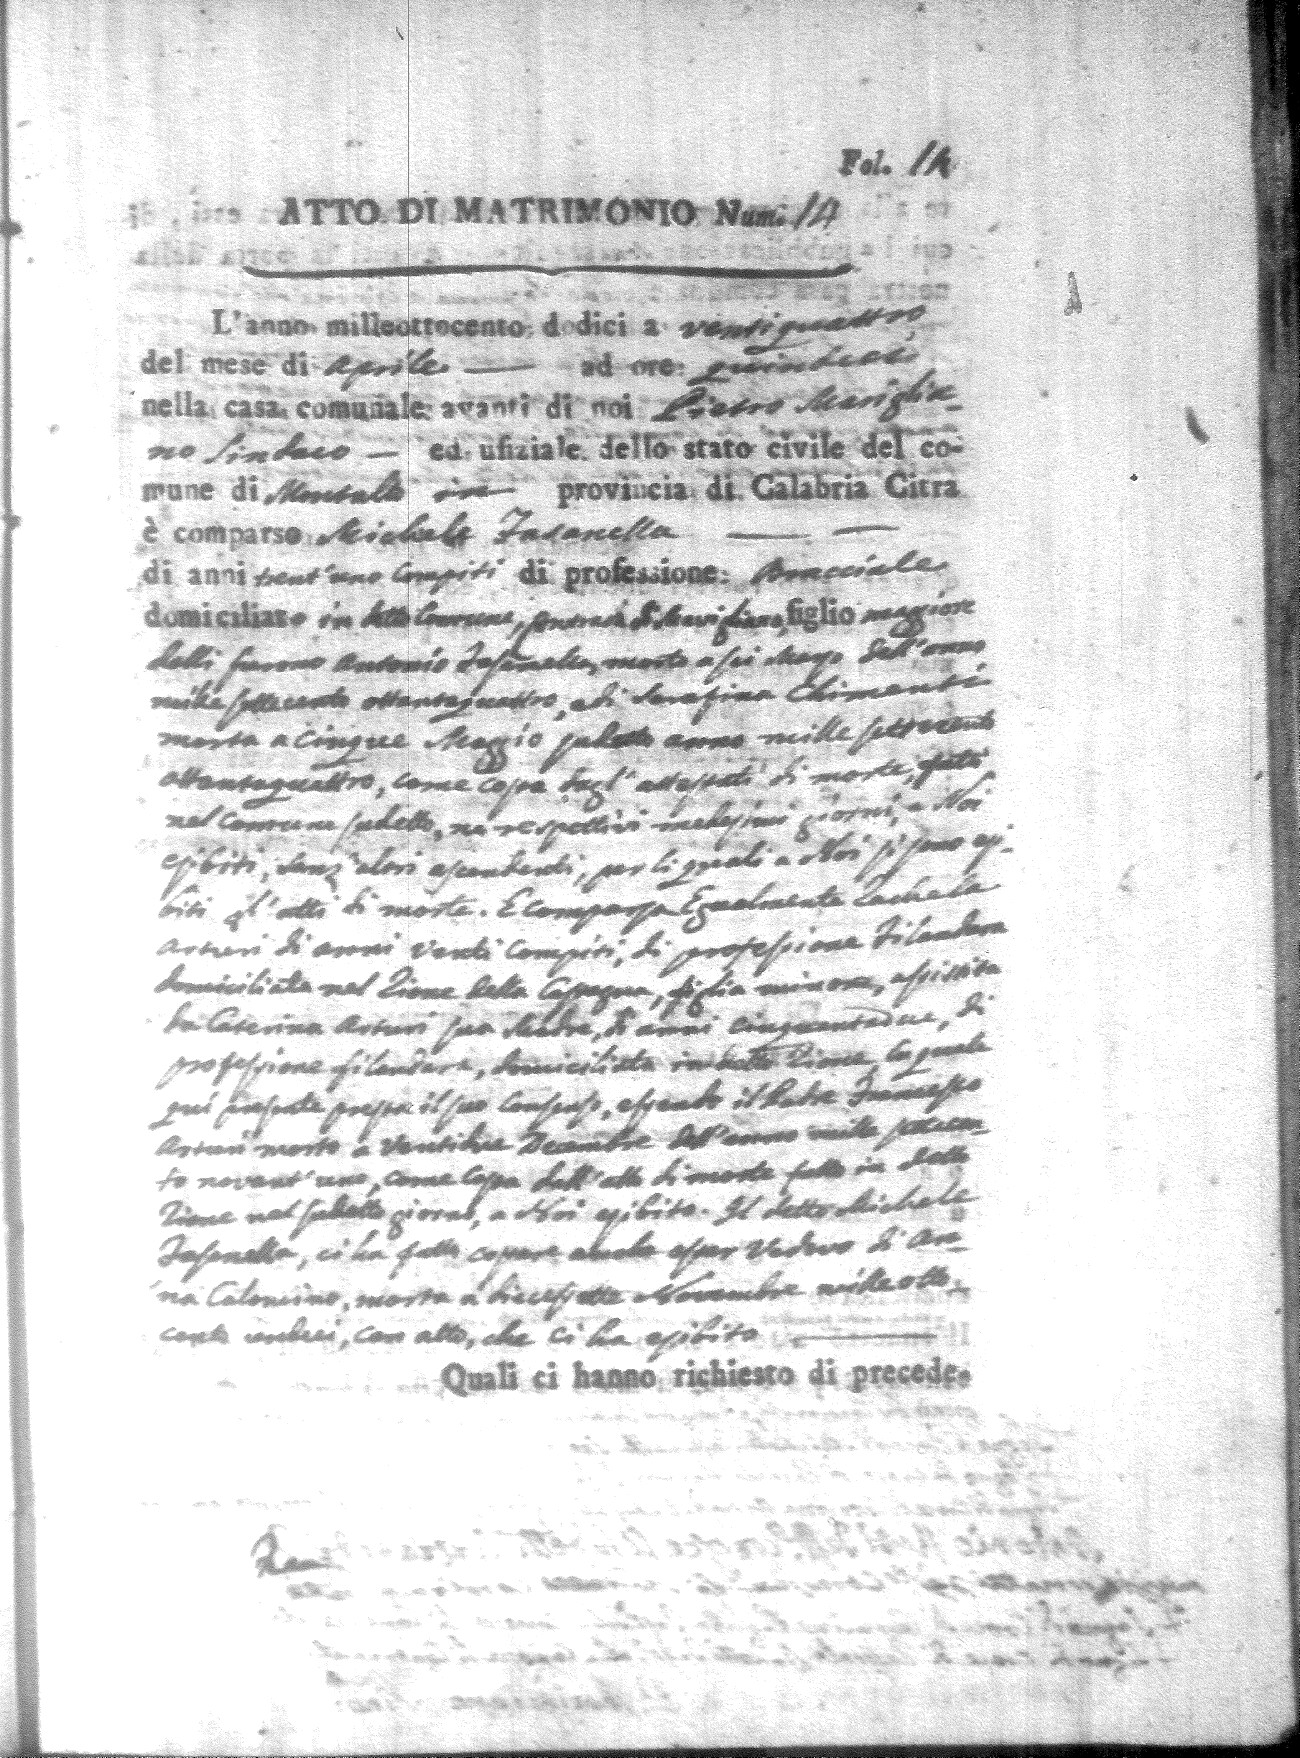 Fol. 14
ATTO DI MATRIMONIO Num. 14
L'anno milleottocento dodici a ventiquattro
del mese di Aprile — ad ore quindeci
nella casa comunale avanti di noi Pietro Mariglia-
no Sindaco — ed ufiziale dello stato civile del co-
mune di Montalto in provincia di Calabria Citra
è comparso Michele Fasanella — —
di anni trent'uno compiti di professione Bracciale
domiciliato in detto Comune, figlio maggiore
delli furono Antonio Fasanella, morto a sei Mag.o dell'anno
mille settecento ottantaquattro, e di Serafina Chimenti
morta a cinque Maggio sudetto anno mille settecento
ottantaquattro, come copia dagl'attestati di morte, fatti
nel Comune sudetto, ne respettivi medesimi giorni, a Noi
esibiti, senz'altri ascendenti, per li quali a Noi si sono esi-
biti gl'atti di morte. E comparsa egualmente Rachela
Arturi di anni venti compiti, di professione Filandara
domiciliata nel Rione della figlia minore, assistita
da Caterina Arturi sua Madre, di anni cinquantadue, di
professione filandara, domiciliata in detto Rione, la quale
qui presente presta il suo consenso, essendo il Padre Francesco
Arturi morto a ventidue Decembre dell'anno mille settecen-
to novant'uno, come copia dall'atto di morte fatto in detto
Rione nel sudetto giorno, a Noi esibito. Il detto Michele
Fasanella, ci ha fatto copiare anche esser Vedovo di An-
na Colonino, morta a diecesette Novembre mille otto-
cento undeci, con atto, che ci ha esibito —
Quali ci hanno richiesto di precede-